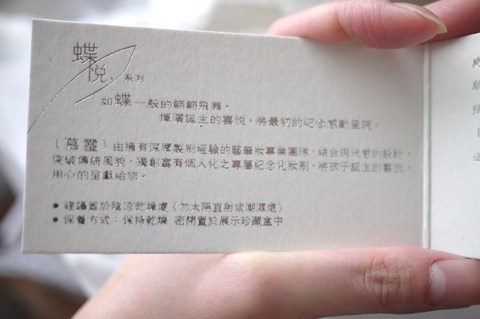 蝶悅。系列
如蝶一般的翩翩飛舞。
揮灑誕生的喜悅。將最初的紀念感動呈現。
由擁有深厚製刷經驗的藝筆妝專業團隊。結合現代感的設計。
突破傳統風貌。獨創富有個人化之專屬紀念化妝刷。將孩子誕生的喜悅。
用心的呈獻給您。
● 建議置於陰涼乾燥處(勿太陽直射或潮濕處)
● 保養方式：保持乾燥 密閉置於展示珍藏盒中